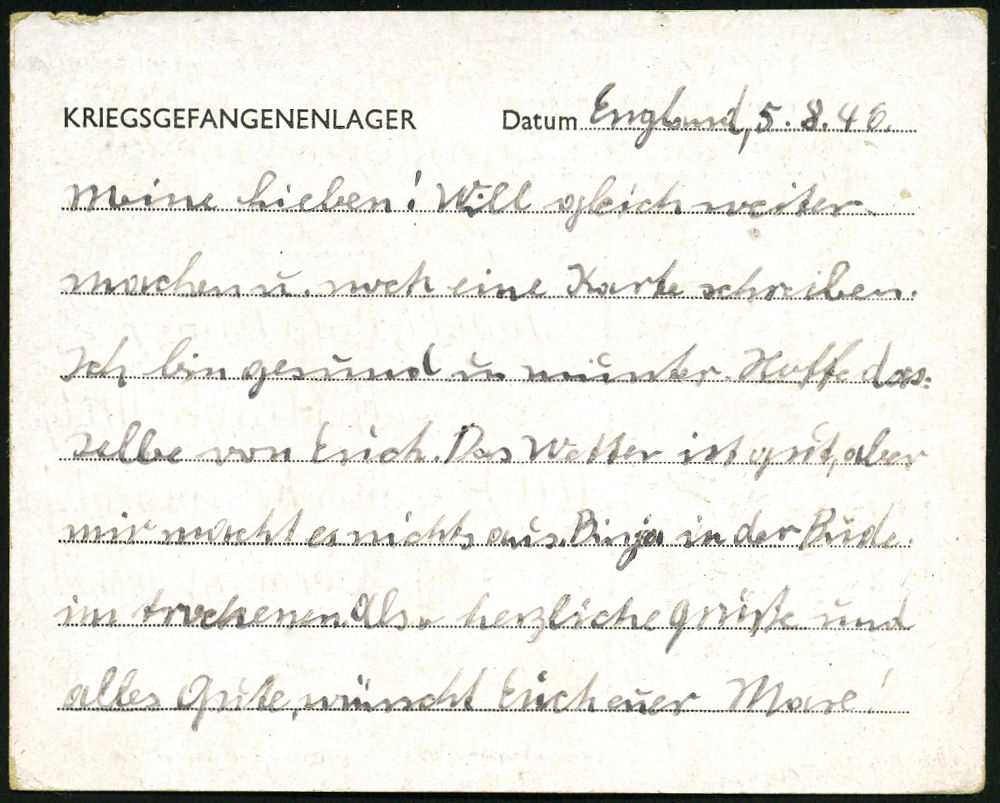 KRIEGSGEFANGENENLAGER Datum England, 5.8.46.
Meine Lieben! Will gleich weiter
machen u. noch eine Karte schreiben.
Ich bin gesund u. munter. Hoffe das-
selbe von Euch. Das Wetter ist gut, aber
mir macht es nichts aus. Bin ja in der Bude.
im trockenen. Also herzliche Grüße und
alles Gute, wünscht Euch euer